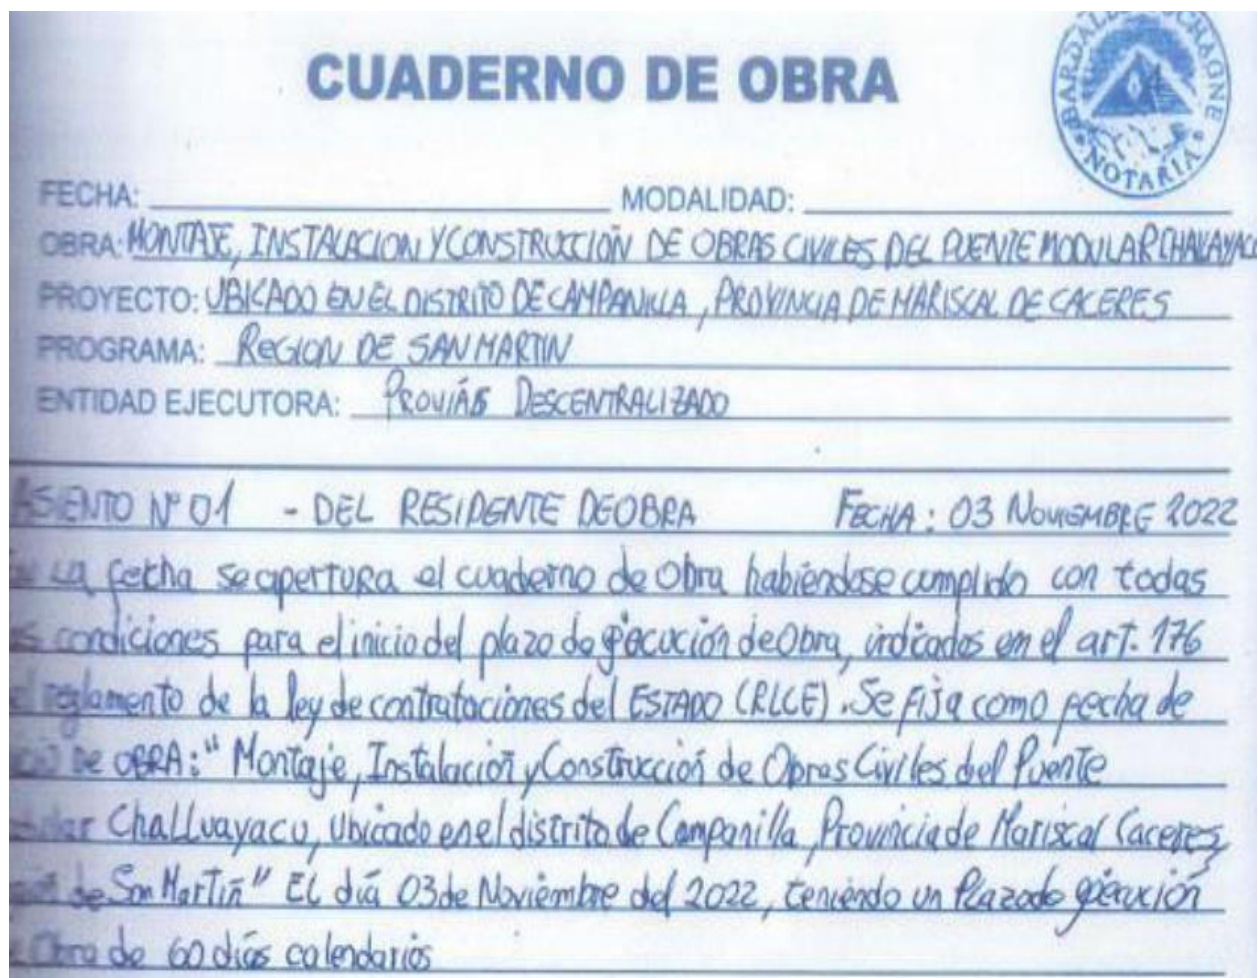 CUADERNO DE OBRA
NOTARIA
FECHA: MODALIDAD:
OBRA: MONTAJE, INSTALACION Y CONSTRUCCIÓN DE OBRAS CIVILES DEL PUENTE MODULAR
PROYECTO: UBICADO EN EL DISTRITO DE CAMPANILLA, PROVINCIA DE MARISCAL DE CACERES
PROGRAMA: REGION DE SAN MARTIN
ENTIDAD EJECUTORA: PROVIÁS DESCENTRALIZADO
ASIENTO N° 01 - DEL RESIDENTE DE OBRA FECHA: 03 NOVIEMBRE 2022
La fecha se apertura el cuaderno de Obra habiéndose cumplido con todas
condiciones para el inicio del plazo de ejecución de Obra, indicados en el art. 176
reglamento de la ley de contrataciones del ESTADO (RLCE). Se fija como fecha de
DE OBRA: "Montaje, Instalación y Construcción de Obras Civiles del Puente
Challuayacu, Ubicado en el distrito de Campanilla, Provincia de Mariscal Caceres,
de San Martín" EL día 03 de Noviembre del 2022, teniendo un Plazo de ejecución
Obra de 60 días calendarios